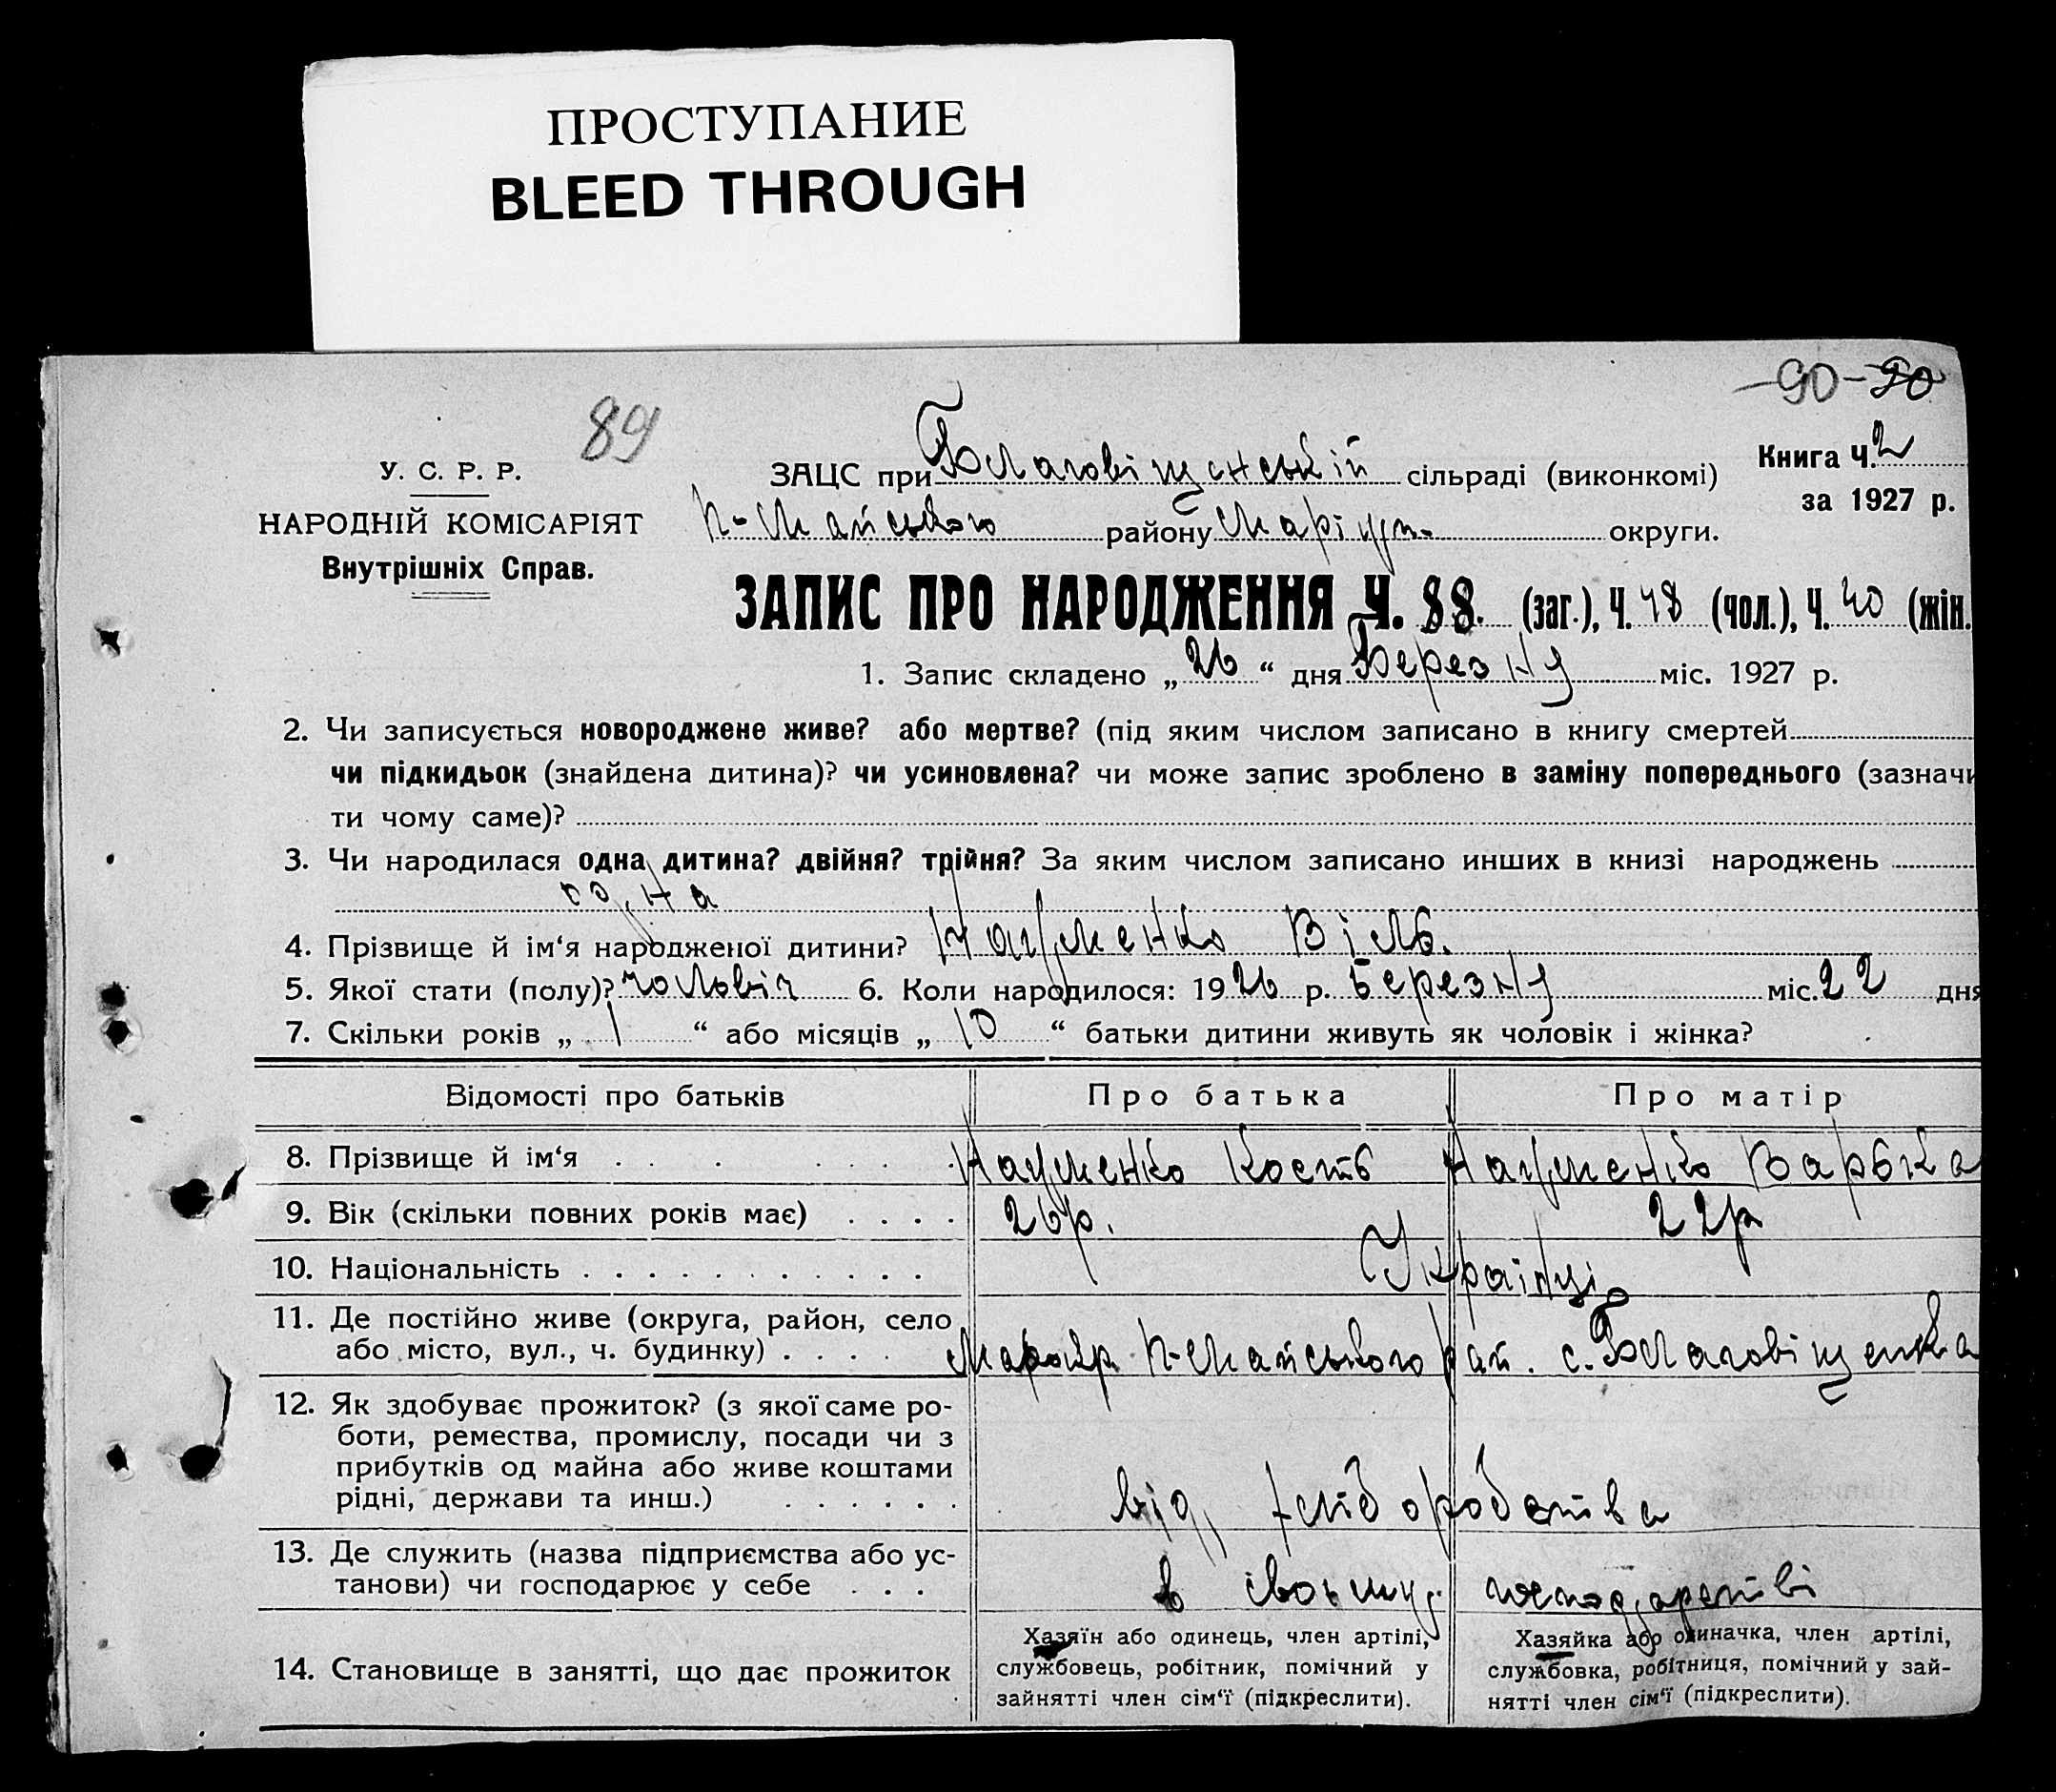 ПРОСТУПАНИЕ
BLEED THROUGH
–90–90
89
Книга Ч. 2
за 1927 р.
У. С. Р. Р.
НАРОДНІЙ КОМІСАРІЯТ
Внутрішніх Справ.
ЗАЦС при Благовіщенській сільраді (виконкомі)
К-Манського району Маріуп. округи.
ЗАПИС ПРО НАРОДЖЕННЯ Ч. 88. (заг.), Ч. 48 (чол.), Ч. 40 (жін.
1. Запис складено „ 26 “ дня Березня міс. 1927 р.
2. Чи записується новороджене живе? або мертве? (під яким числом записано в книгу смертей
чи підкидьок (знайдена дитина)? чи усиновлена? чи може запис зроблено в заміну попереднього (зазначи
ти чому саме)?
3. Чи народилася одна дитина? двійня? трійня? За яким числом записано инших в книзі народжень
одна
4. Прізвище й ім‘я народженої дитини? Науменко Віль.
5. Якої стати (полу)? чоловіч 6. Коли народилося: 1926 р. Березня міс. 22 дня
7. Скільки років „ 1 “ або місяців „ 10 “ батьки дитини живуть як чоловік і жінка?
Відомості про батьків Про батька Про матір
8. Прізвище й ім‘я Науменко Кость Науменко Варька
9. Вік (скільки повних років має) 26р. 22р
10. Національність Українці
11. Де постійно живе (округа, район, село
або місто, вул., ч. будинку) К-Манського рай. с. Благовіщенка
12. Як здобуває прожиток? (з якої саме ро-
боти, ремества, промислу, посади чи з
прибутків од майна або живе коштами
рідні, держави та инш.) від хліборобства
13. Де служить (назва підприємства або ус-
танови) чи господарює у себе в своьму господарстві
14. Становище в занятті, що дає прожиток
Хазяїн або одинець, член артілі,
службовець, робітник, помічний у
зайнятті член сім‘ї (підкреслити).
Хазяйка або одиначка, член артілі,
службовка, робітниця, помічний у зай-
нятті член сім‘ї (підкреслити).